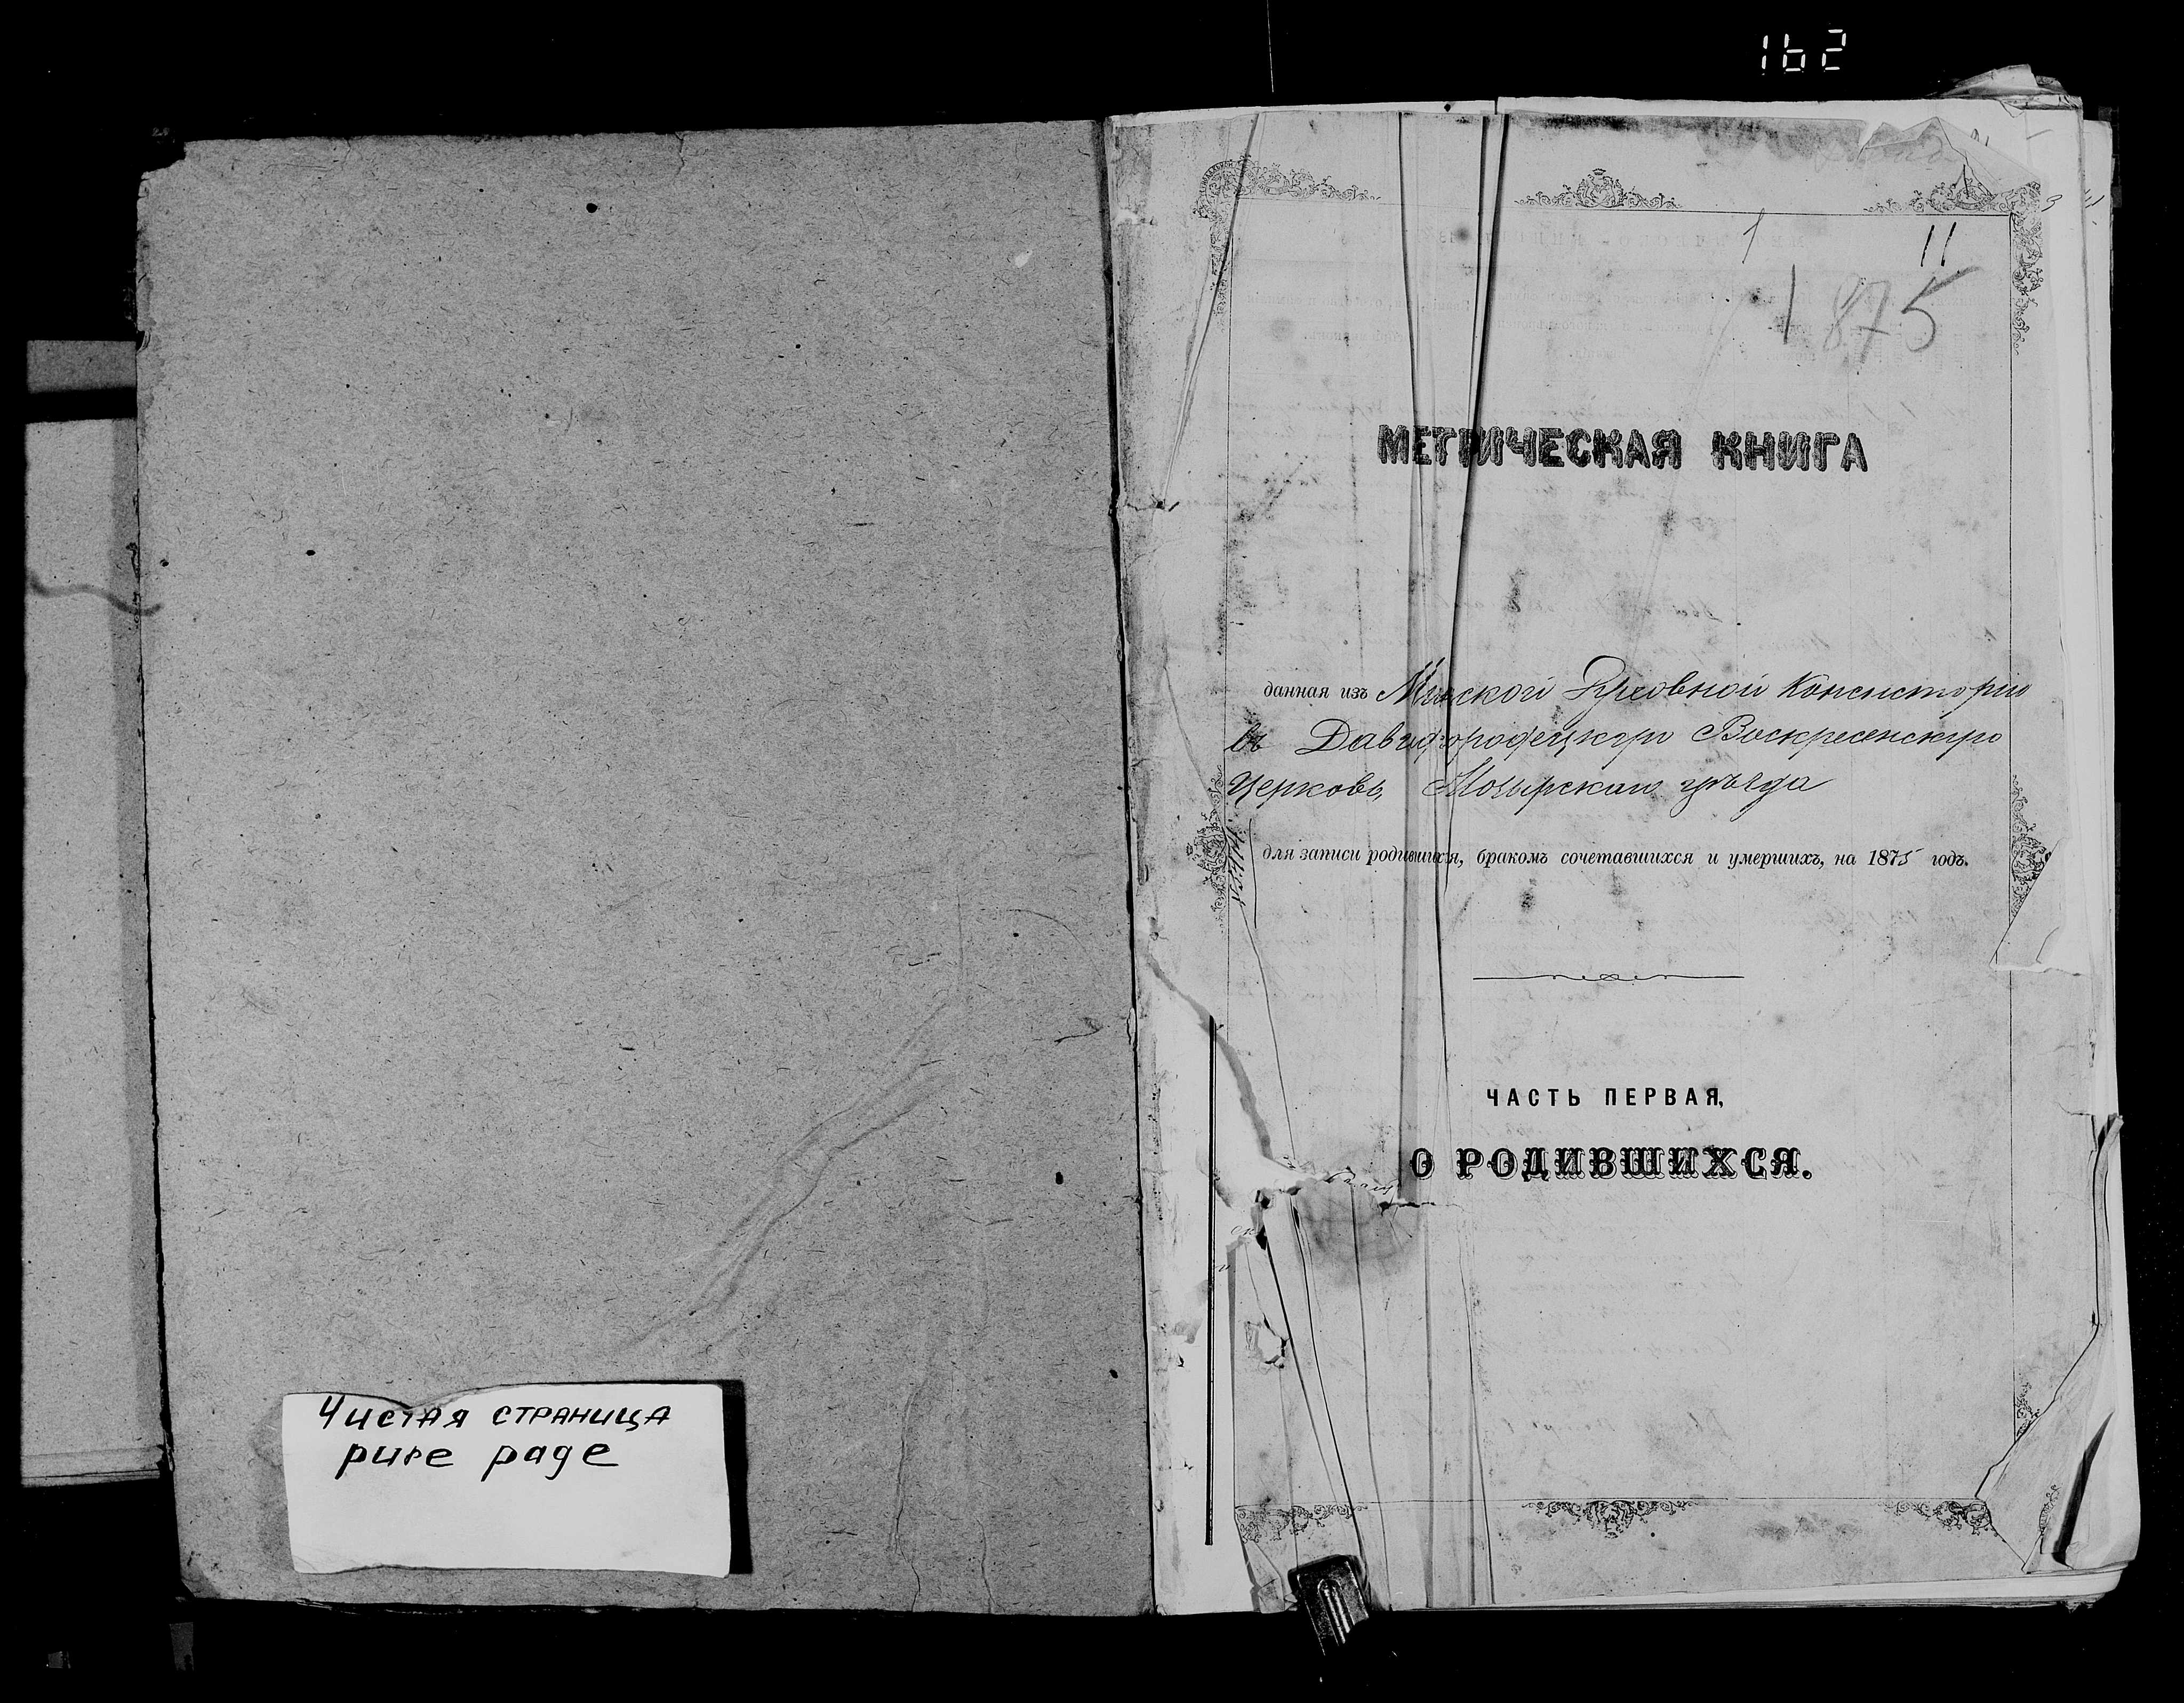 162
Чистая страница
pure page
1
11
1875
МЕТРИЧЕСКАЯ КНИГА
данная изъ Минской Духовной Консисторіи
въ Давидгородецкую Воскресенскую
Церковь Мозырскаго уѣзда
для записи родившихся, бракомъ сочетавшихся и умершихъ, на 1875 годъ.
ЧАСТЬ ПЕРВАЯ,
О РОДИВШИХСЯ.